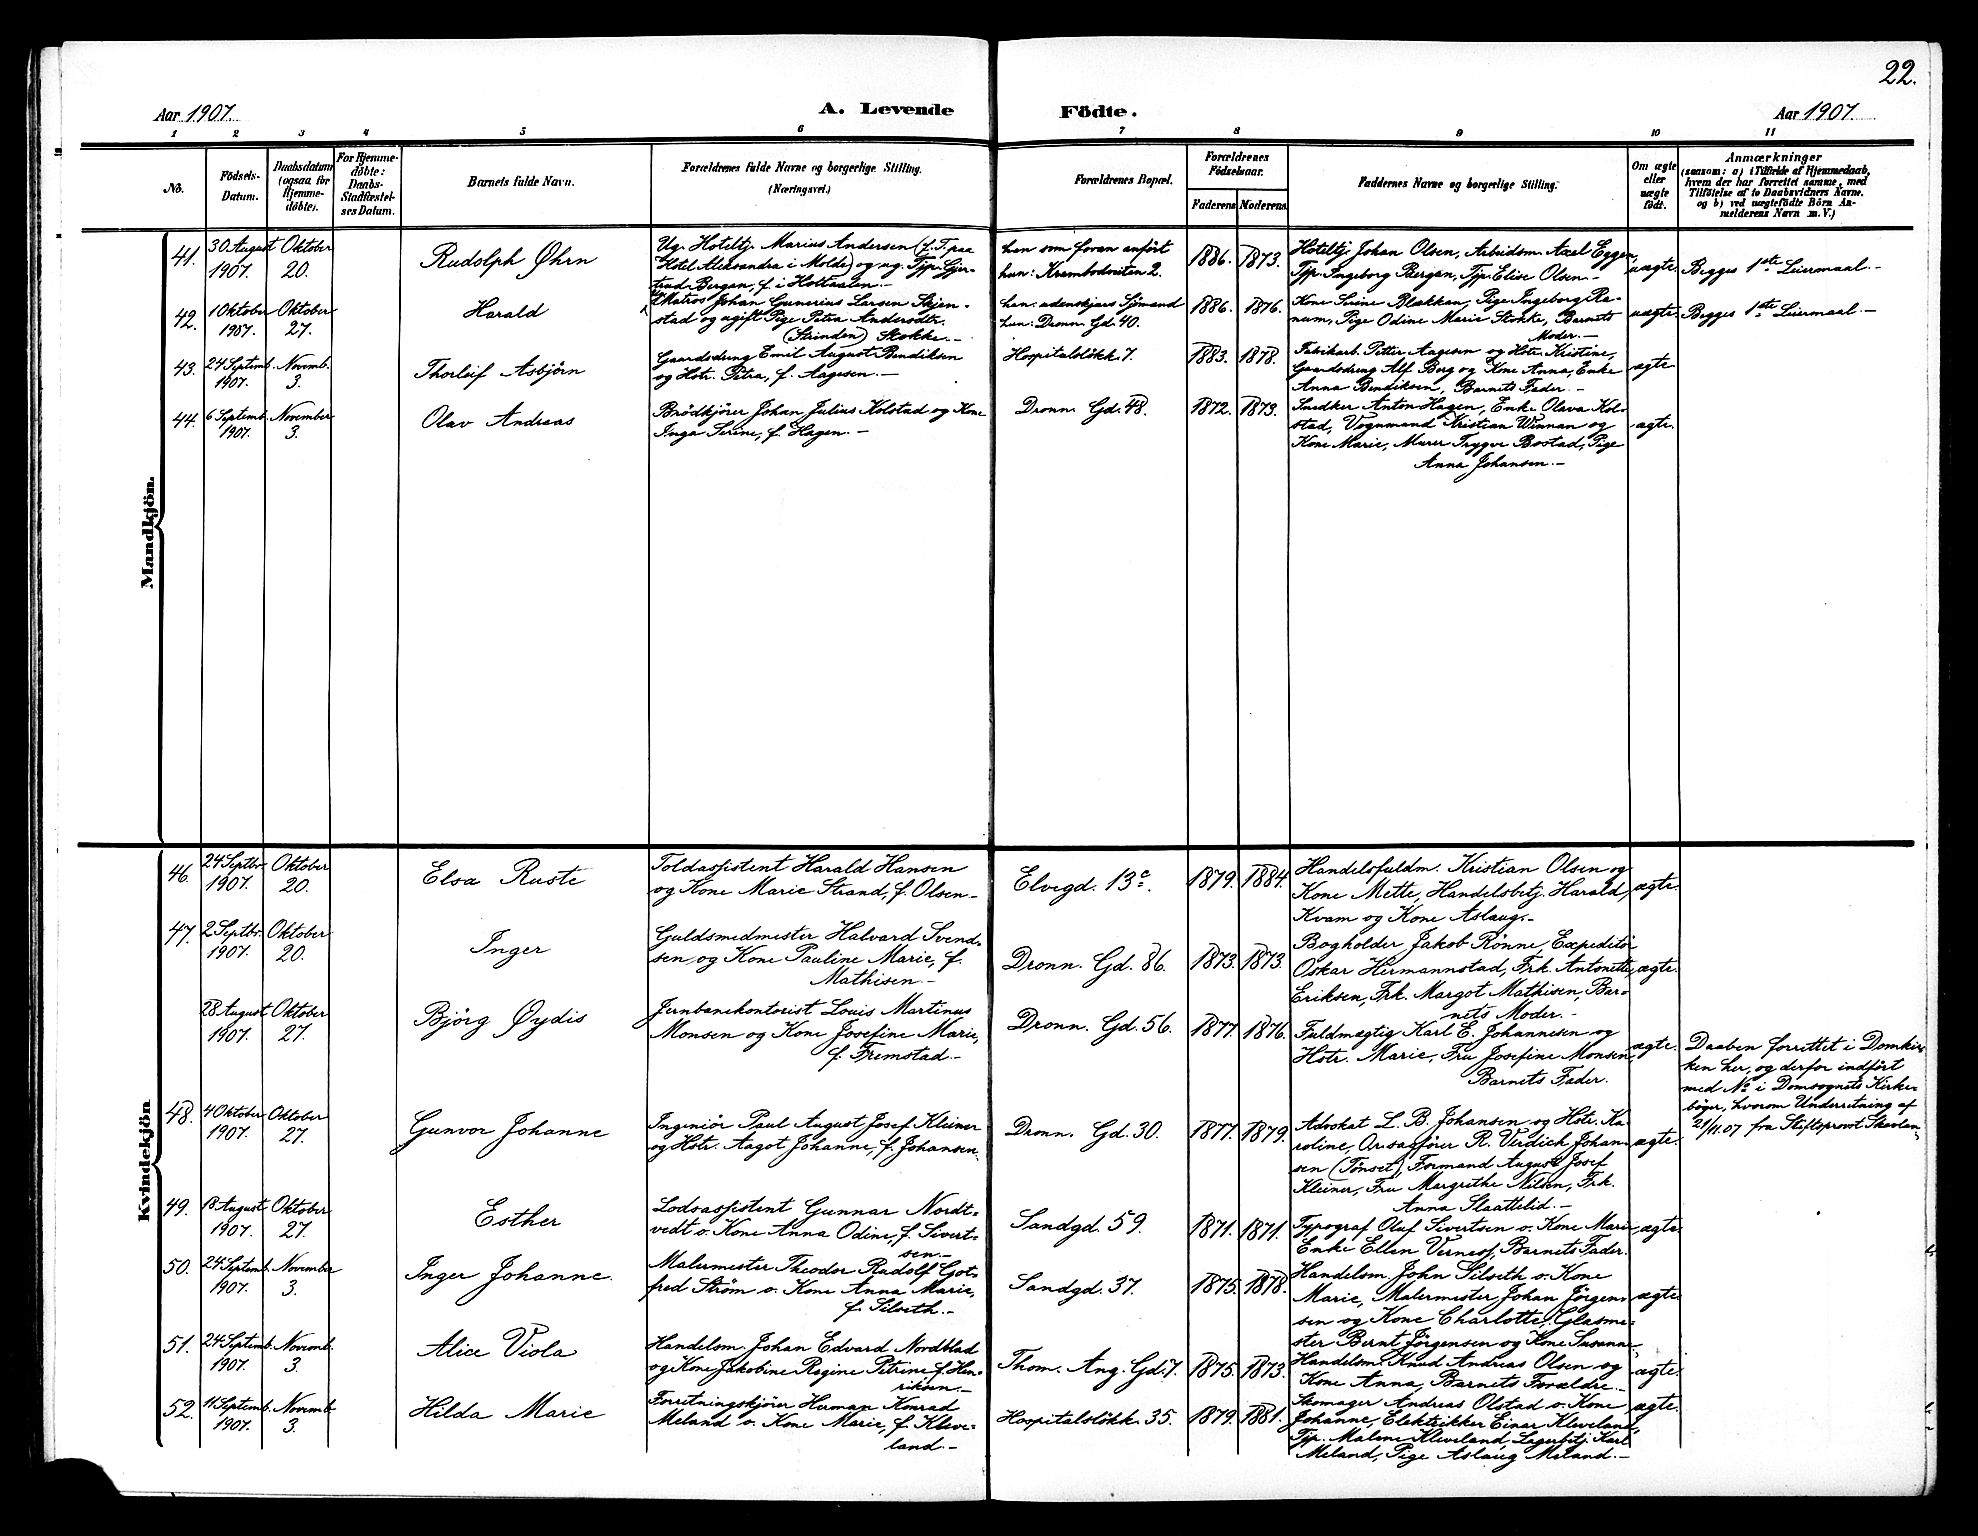 22.
Aar 1907.
A. Levende
Födte.
Aar 1907.
1 2 3 4 5 6 7 8 9 10 11
No.
Födsels-
Datum.
Daabsdatum
(ogsaa for
Hjemme-
døbte).
For Hjemme-
døbte:
Daabs-
Stadfæstel-
ses Datum.
Barnets fulde Navn.
Forældrenes fulde Navne og borgerlige Stilling.
(Næringsvei.)
Forældrenes Bopæl.
Forældrenes
Födselsaar.
Faderens Moderens
Faddernes Navne og borgerlige Stilling.
Om ægte
eller
uægte
födt.
Anmærkninger
(saasom: a) i Tilfælde af Hjemmedaab,
hvem der har forrettet samme, med
Tilföielse af to Daabsvidners Navne.
og b) ved uægtefödte Börn An-
melderens Navn m. V.)
Mandkjön.
41.
30 August
1907.
Oktober
20.
Rudolph Øhrn
Ug. Hoteltj. Marius Andersen (f. T. paa
Hotel Aleksandra i Molde) og ug. Tjp. Gjer-
trud Bergan, f. i Holtaalen.—
han som foran anført
hun: Krambodveiten 2.
1886. 1873.
Hoteltj. Johan Olsen, Arbeidsm. Axel Eggen,
Tjp. Ingeborg Bergan, Tjp. Elise Olsen.—
uægte.
Begges 1ste Leiermaal.—
42.
1 Oktober
1907.
Oktober
27.
Harald
Matros Johan Gunerius Larsen Skjen-
stad og ugift Pige Petra Andersdtr.
(Strinden) Stokke.—
han: udenskjærs Sjømand
hun: Dronn. Gd. 40.
1886. 1876.
Kone Serine Blækkan, Pige Ingeborg Ra-
num, Pige Odine Marie Stokke, Barnets
Moder.—
uægte.
Begges 1ste Leiermaal.—
43.
24 Septemb.
1907.
Novemb.
3.
Thorleif Asbjörn
Gaardsdreng Emil August Bendiksen
og Hstr. Petra, f. Aagesen.—
Hospitalsløkk. 7.
1883. 1878.
Fabrikarb. Petter Aagesen og Hstr. Kristine,
Gaardsdreng Alf Berg og Kone Anna, Enke
Anna Bendiksen, Barnets Fader.—
ægte
44.
6 Septemb.
1907.
November
3.
Olav Andreas
Brödkjörer Johan Julius Kolstad og Kone
Inga Serine, f. Hagen.—
Dronn. Gd. 48.
1872. 1873.
Snedker Anton Hagen, Enke Olava Kol-
stad, Vognmand Kristian Winnan og
Kone Marie, Murer Trygve Bostad, Pige
Anna Johansen.—
ægte.
Kvindekjön
46.
24 Septbr.
1907.
Oktober
20.
Elsa Ruste
Toldassistent Harald Hansen
og Kone Marie Strand, f. Olsen—
Elvegd. 13c.
1879. 1884.
Handelsfuldm. Kristian Olsen og
Kone Mette, Handelsbetj. Harald
Kvam og Kone Aslaug.—
ægte.
47.
2 Septbr.
1907.
Oktober
20.
Inger
Guldsmedmester Halvard Svend-
sen og Kone Pauline Marie, f.
Mathisen.—
Dronn. Gd. 86.
1873. 1873.
Bogholder Jakob Rönne, Expeditör
Oskar Hermannstad, Frk. Antonette
Eriksen, Frk. Margot Mathisen, Bar-
nets Moder.—
ægte.
28 August
1907.
Oktober
27.
Bjørg Øydis
Jernbanekontorist Louis Martinus
Monsen og Kone Josefine Marie,
f. Fremstad.—
Dronn. Gd. 56.
1877. 1876.
Fuldmægtig Karl E. Johannesen og
Hstr. Marie, Fru Josefine Monsen,
Barnets Fader.
ægte.
Daaben forrettet i Domkir-
ken her, og derfor indfört
med No i Domsognets Kirke-
böger, hvorom Underretning af
21/11.07 fra Stiftsprovst
48.
4 Oktober
1907.
Oktober
27.
Gunvor Johanne
Ingeniör Paul August Josef Kleiner
og Hstr. Aagot Johanne, f. Johansen.
Dronn. Gd. 30.
1877. 1879.
Advokat L. B. Johansen og Hstr. Ka-
roline, Overretssagförer R. Verdich Johan-
sen (Tønset), Formand August Josef
Kleiner, Fru Margrethe Nilsen, Frk.
Anna Slaattelid.—
ægte.
49.
18 August
1907.
Oktober
27.
Esther
Lodsassistent Gunnar Nordt-
vedt o. Kone Anna Odine, f. Sivert-
sen.—
Sandgd. 59.
1871. 1871.
Typograf Oluf Sivertsen o. Kone Marie
Enke Ellen Verness, Barnets Fader.
ægte.
50.
24 Septemb.
1907.
November
3.
Inger Johanne.
Malermester Theodor Rudolf Got-
fred Strøm o. Kone Anna Marie,
f. Silseth.—
Sandgd. 37.
1875. 1878.
Handelsm. John Silseth o. Kone
Marie, Malermester Johan Jörgen-
sen og Kone Charlotte, Glasme-
ster Bernt Jörgensen og Kone Susanne
ægte.
51.
24 Septemb.
1907.
Novemb.
3
Alice Viola
Handelsm. Johan Edvard Nordblad
og Kone Jakobine Regine Petrine, f. Hen-
riksen.—
Thom. Ang. Gd. 7.
1875. 1873.
Handelsm. Knud Andreas Olsen og
Kone Anna, Barnets Forældre.—
ægte.
52.
11 Septemb.
1907.
Novemb.
3.
Hilda Marie
Forretningskjører Herman Konrad
Meland o. Kone Marie, f. Kleve-
land.—
Hospitalsløkk. 35.
1879. 1881.
Skomager Andreas Olstad o. Kone
Johanne, Elektrikker Einar Kleveland,
Tjp. Malene Kleveland, Lagerbetj. Karl
Meland, Pige Aslaug Meland.—
ægte.